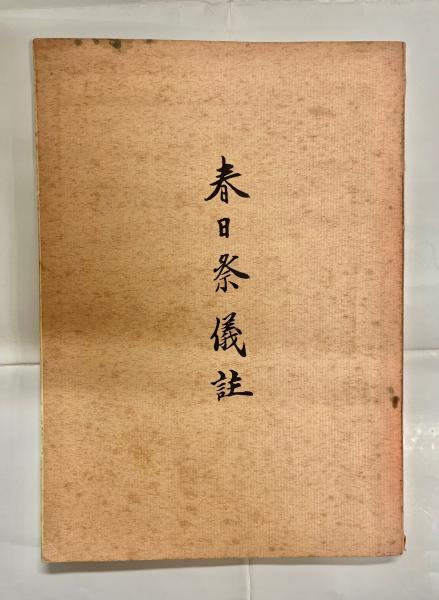 春日祭儀註